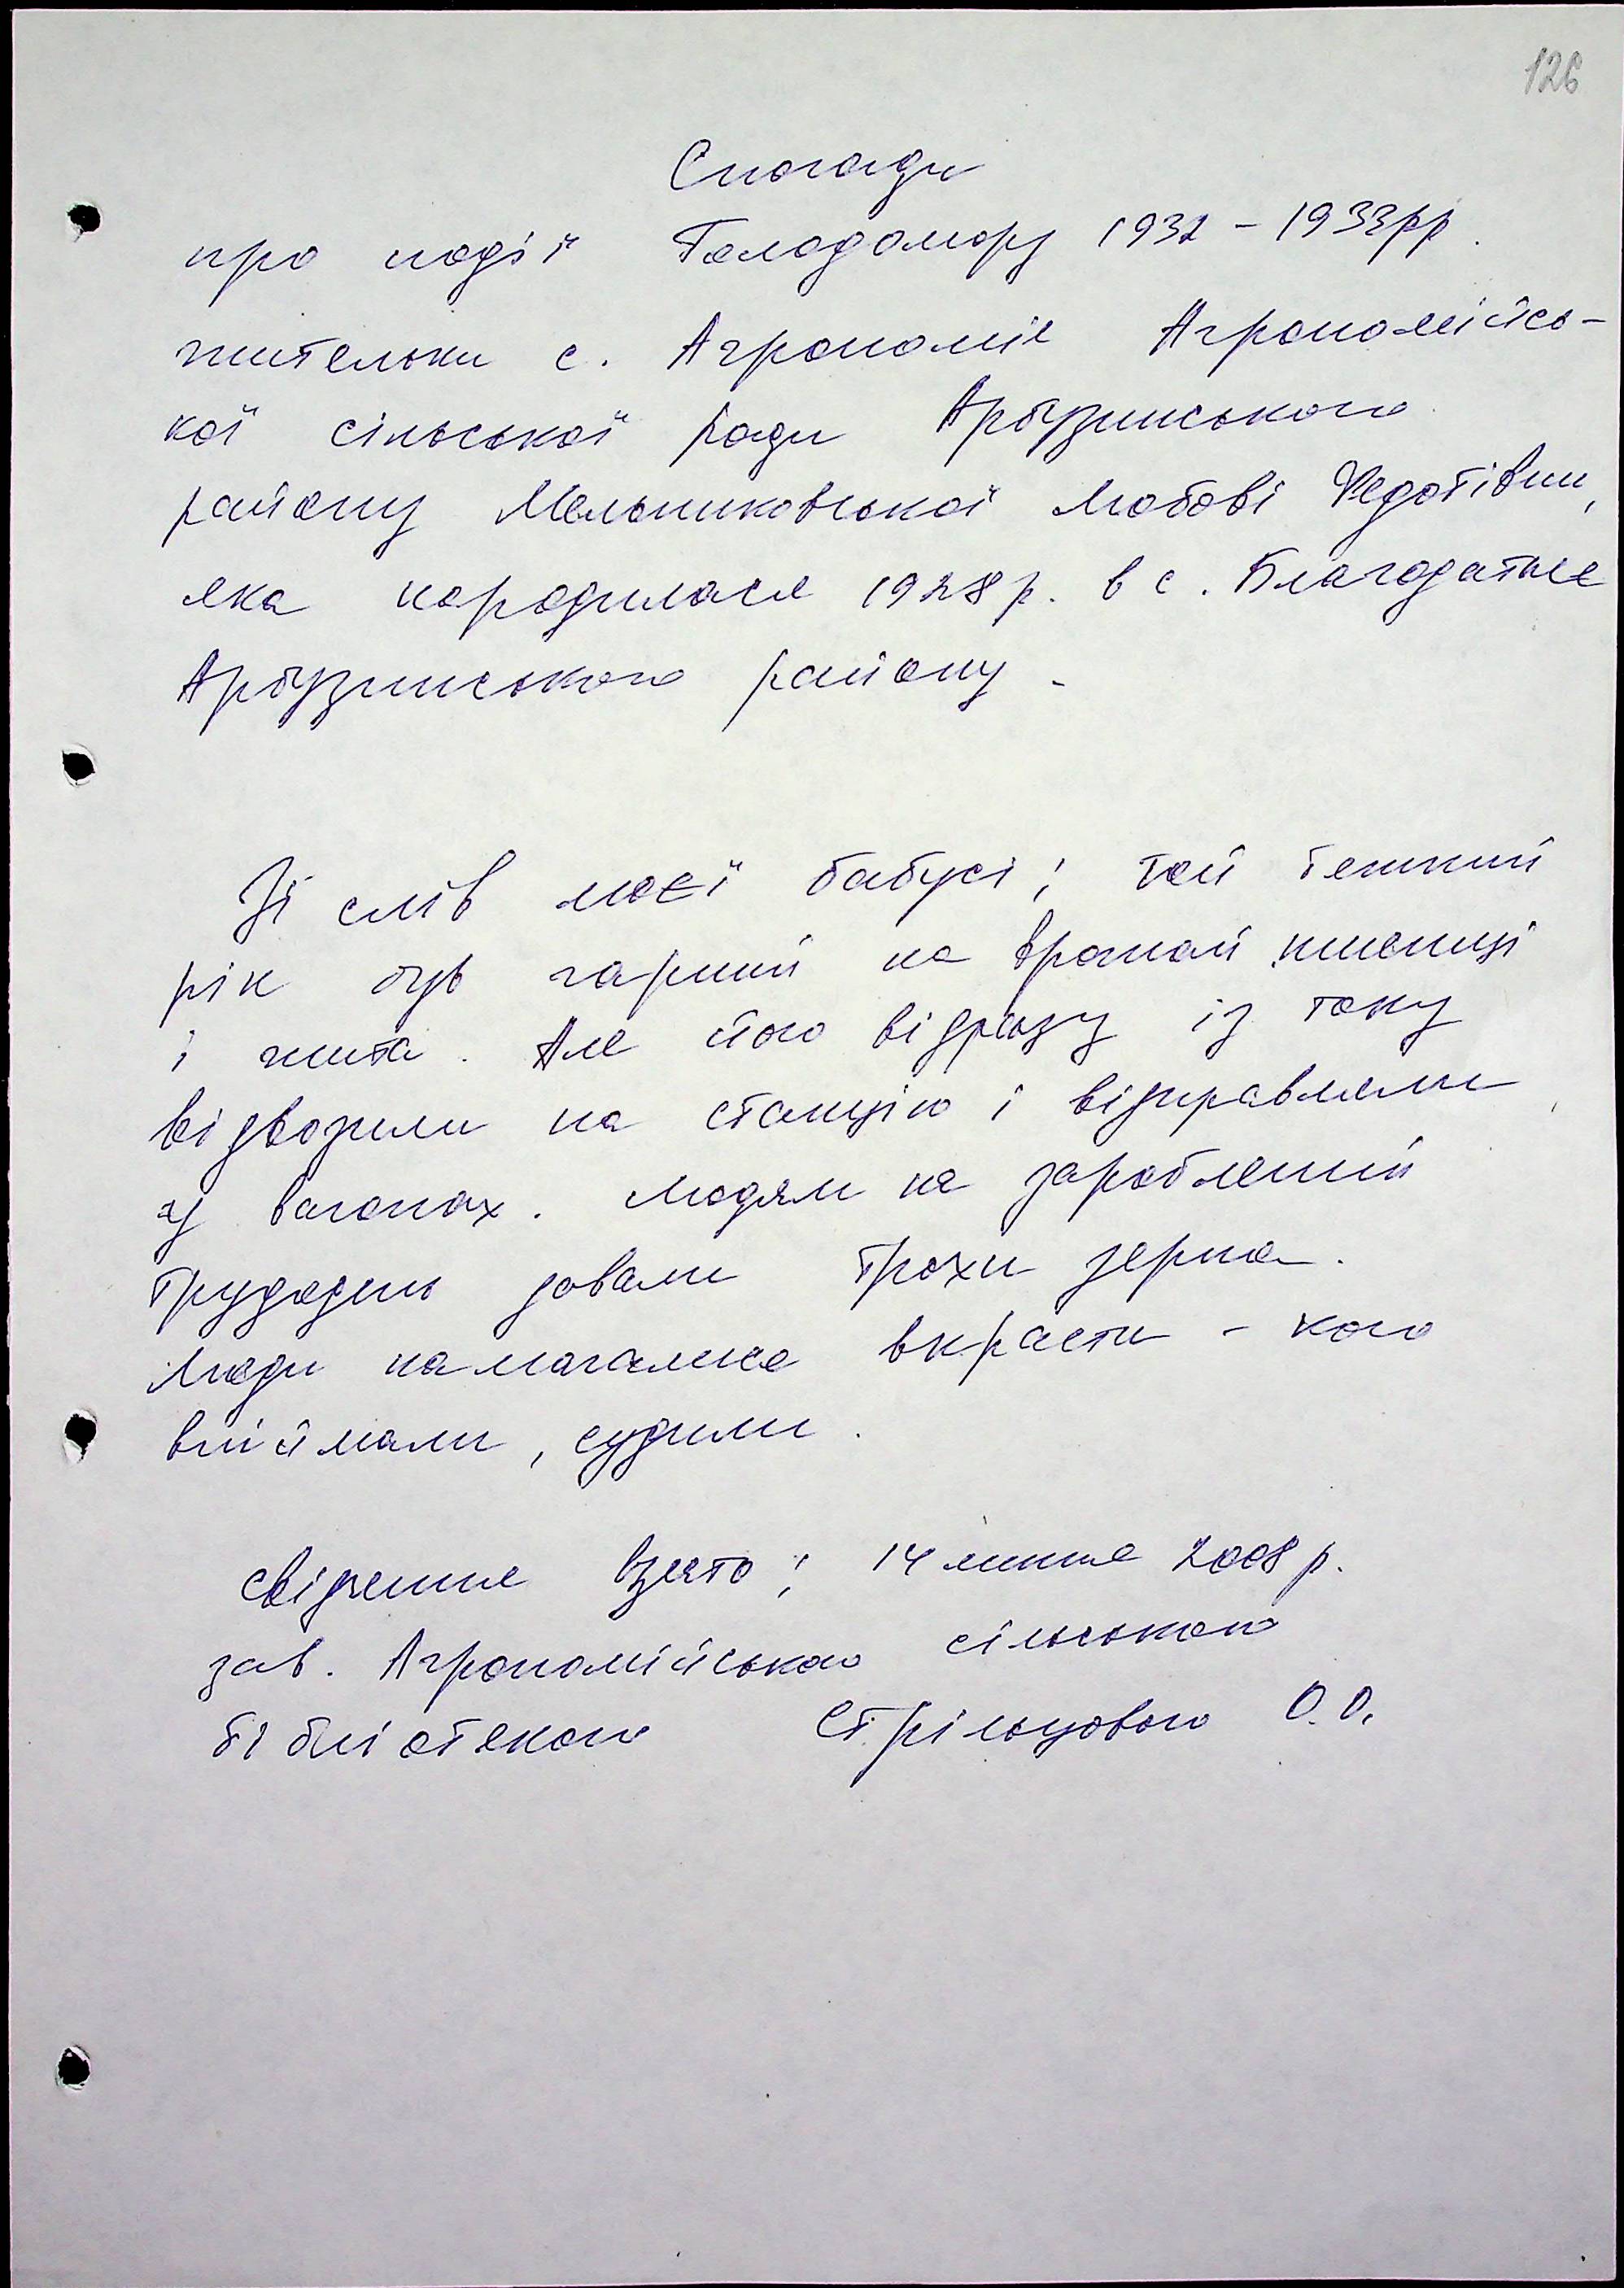 126
Спогади
про події Голодомору 1932 - 1933рр.
жительки с. Агрономія Агрономійсь-
кої сільської ради Арбузинського
району Мельниковської Любові Федотівни,
яка народилася 1928 р. в с. Благодатне
Арбузинського району.
Зі слів моєї бабусі; той тяжкий
рік був гарний на врожай пшениці
і жита. Але його відразу із току
відвозили на станцію і відправляли
у вагонах. Людям на зароблений
трудодень давали трохи зерна.
Люди намагалися вкрасти - кого
впіймали, судили.
Свідчення взято; 14 липня 2008 р.
зав. Агрономійською сільською
бібліотекою Стрільцовою О.О.